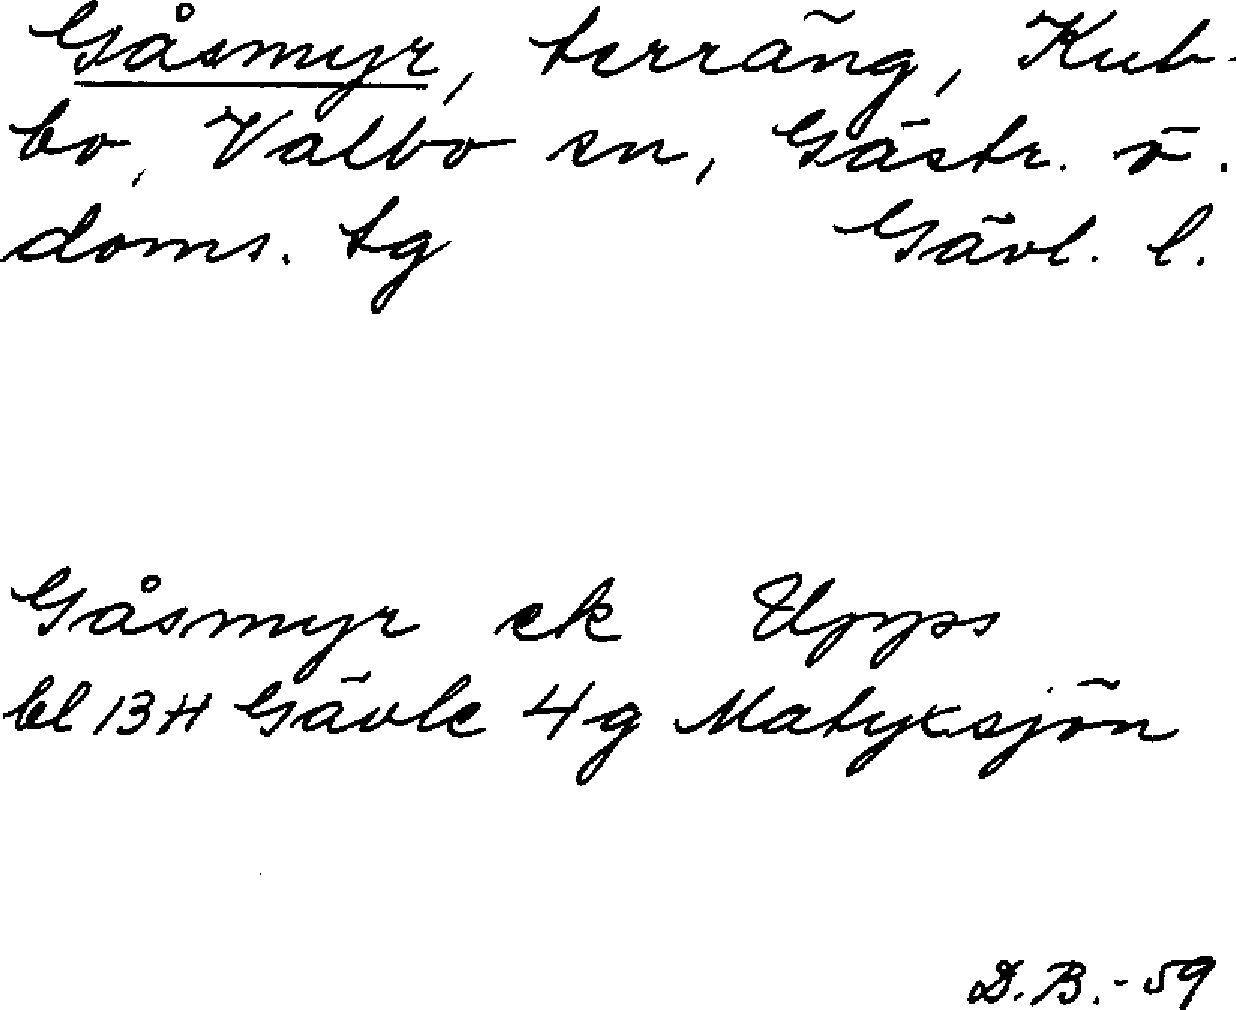 Gåsmyr, terräng, Kub-
bo, Valbo sn, Gästr. ö.
doms. tg Gävl. l.
Gåsmyr ek Upps
bl 13 H Gävle 4g Matyxsjön
D.B.-59